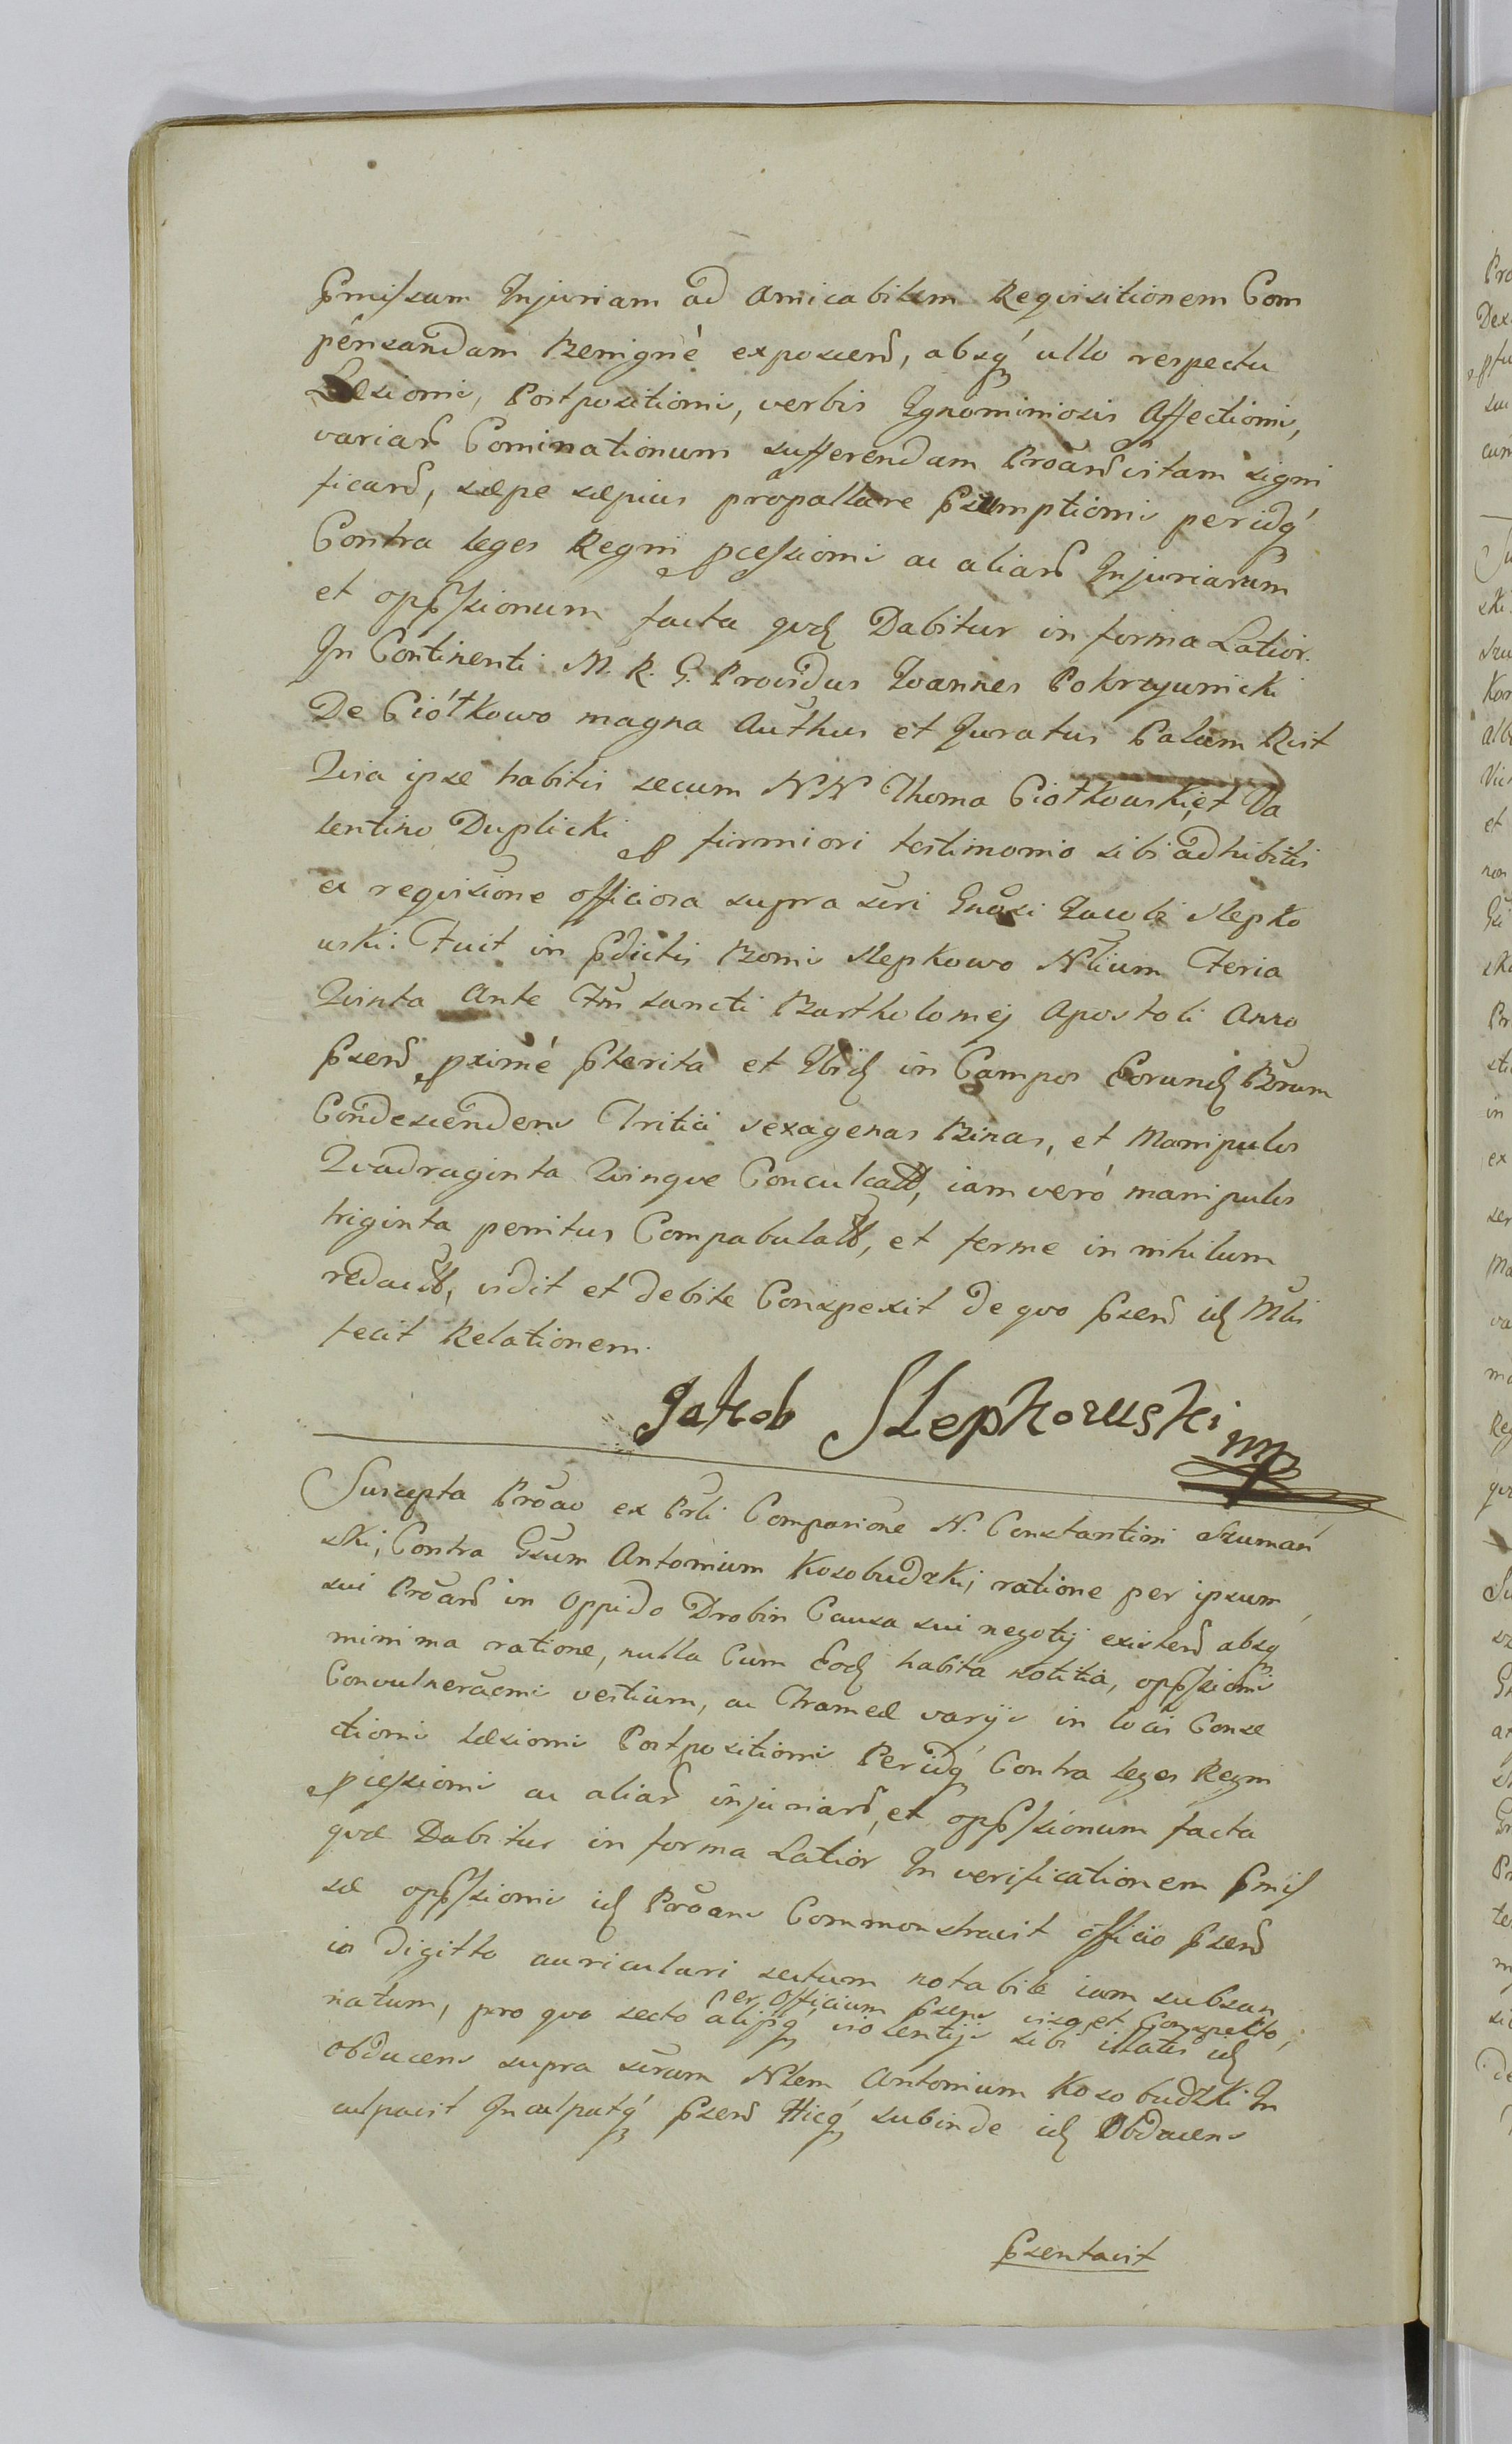 Pmissam Injuriam ad Amicabilem Requisitionem Com
pensandam Benignè exposcend, absq́ ullo respectu
Læsionis, Postpositionis, verbis Ignominiosis Affectionis,
variar Cominationum sufferendam Proãnd vitam signi
ficand, sæpe sæpius propallare Psumptionis periclq́
Contra leges Regni pcessionis ac aliar Injuriarum
et oppssionum facta qvæ Dabitur in forma Latior.
In Continenti M. R. G. Providus Ioannes Pokrzywnicki
De Ciółkowo magna Authus et Juratus Palam Rsit
Quia ipse habitis secum NN Thoma Ciołkowski, et Va
lentino Duplicki p firmiori testimonio sibi adhibitis
ex reqvisiõne officiosa supra scri Gnosi Jacobi Slepko
wski. Fuit in Pdictis Bonis Slepkowo Nlium Feria
Quinta Ante Fm̃ Sancti Bartholomej Apostoli Anno
Psend pximè Pterita et Ibid in Campos Eorund Bõrum
Condescendens Tritici sexagenas Binas, et Manipulos
Qvadraginta Qvinqve Conculcatt, iam verò manipulos
triginta penitus Compabulatt, et ferme in nihilum
redactt, vidit et debite Conspexit de qvo Psend id Mlis
fecit Relationem.
Jakob Slepkowski mp
Suscepta Prõao ex Prli Comparione N. Constantini Szumań
ski, Contra Gsum Antonium Kosobudzki, ratione per ipsum
sui Prõand in Oppido Drobin Causa sui negotij existend absq
minima ratione, nulla Cum Eod habita notitia, oppssionis
Convulneraõnis vestium, ac Thrameæ varijs in locis Conse
ctionis læsionis Postpositionis Periclq́ Contra leges Regni
pcessionis ac aliar injuriar, et oppssionum facta
qvæ Dabitur in forma Latior In verificationem Pmis
sæ oppssionis id Prõans Commonstravit officio Psend
in digitto auriculari sectum notabile iam subsan
natum, pro qvo secto per Officium Psens viso et Conspecto,
alijsq́ violentijs sibi illatis id
Obducens supra scrum Nlem Antonium Kosobudzki In
culpavit Inculpatq́ Psend Hicq́ subinde id Obducens
Psentavit